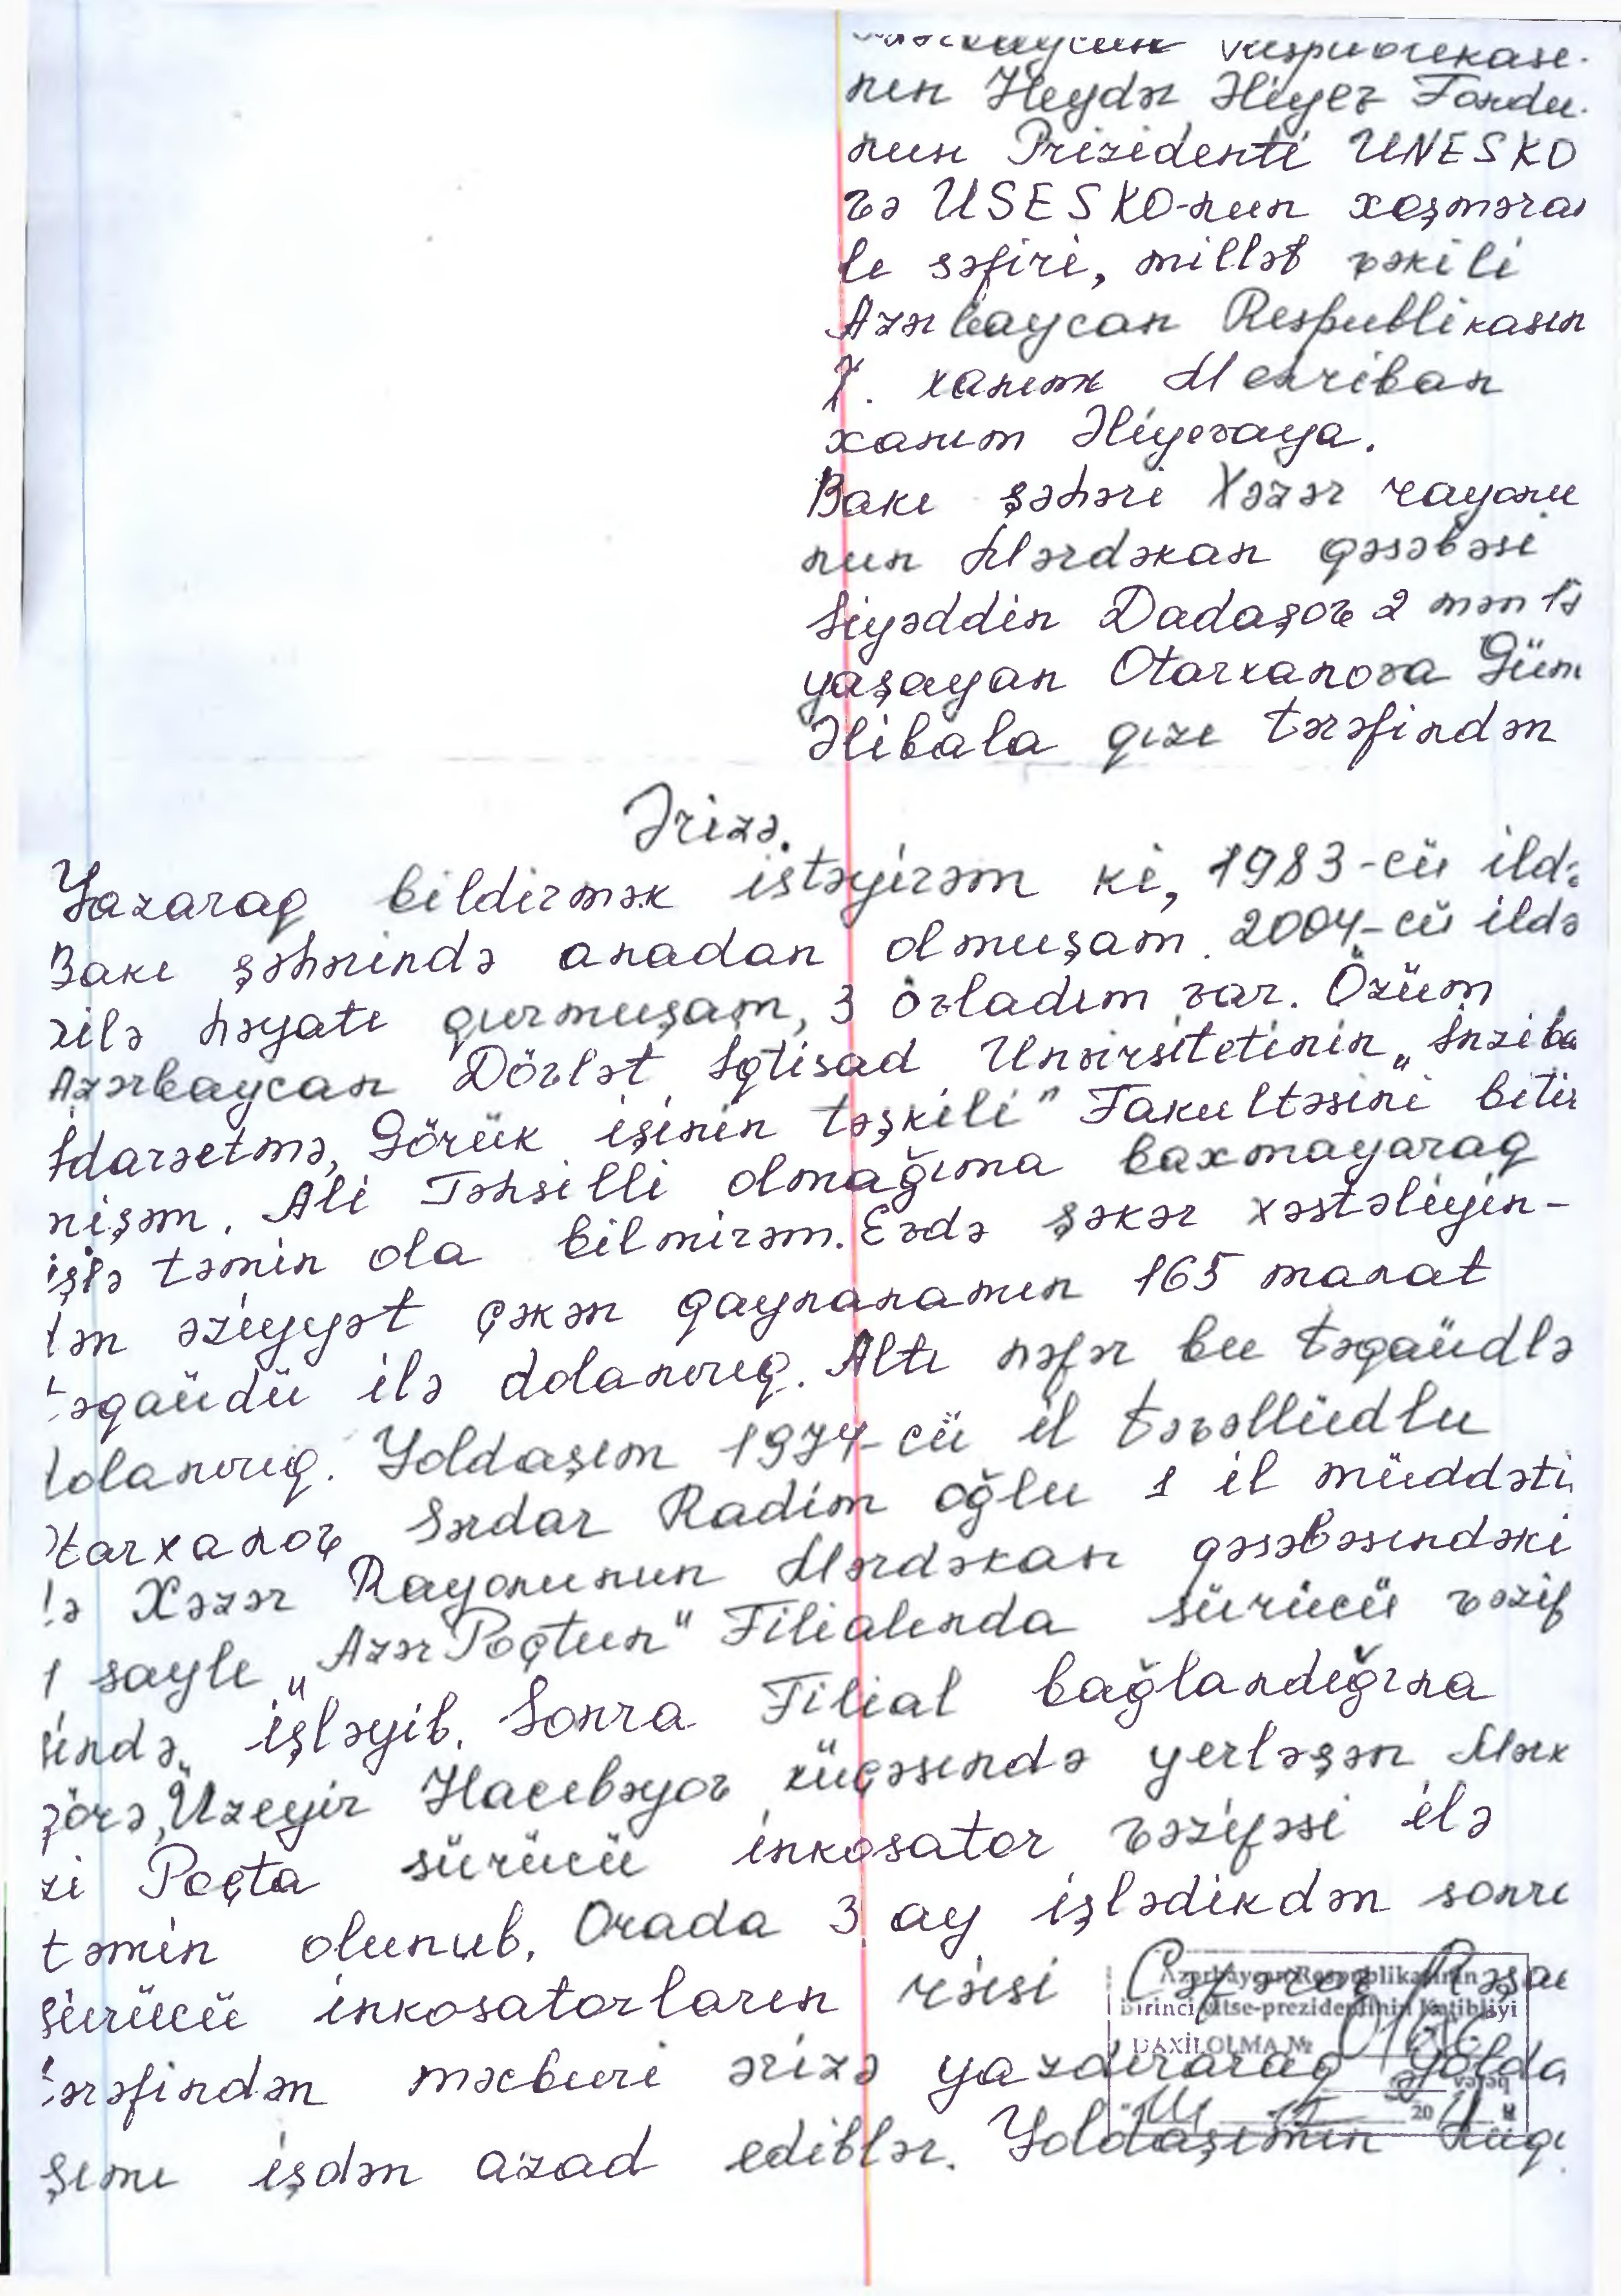 Respublikası-
nın Heydər Əliyev Fondu-
nun Prizidenti UNESKO
və USESKO-nun xoşməra
lı səfiri, millət vəkili
Azərbaycan Respublikasın
I. xanımı Mehriban
xanım Əliyevaya.
Bakı şəhəri Xəzər rayonu
nun Mərdəkan qəsəbəsi
Siyəddin Dadaşov 2 mən 15
yaşayan Otarxanova Gün
Əlibala qızı tərəfindən
Ərizə.
Yazaraq bildirmək istəyirəm ki, 1983-cü ildə
Bakı şəhərində anadan olmuşam. 2004-cü ildə
ailə həyatı qurmuşam, 3 övladım var. Özüm
Azərbaycan Dövlət İqtisad Unversitetinin „İnziba
İdarəetmə, Görük işinin təşkili" Fakultəsini bitir
mişəm. Ali Təhsilli olmağıma baxmayaraq
işlə təmin ola bilmirəm. Evdə şəkər xəstəliyin-
dən əziyyət çəkən qaynanamın 165 manat
təqaüdü ilə dolanırıq. Altı nəfər bu təqaüdlə
dolanırıq. Yoldaşım 1974-cü il təvəllüdlu
Otarxanov Sərdar Radim oğlu 1 il müddəti
lə Xəzər Rayonunun Mərdəkan qəsəbəsındəki
1 saylı „AzərPoçtun" Filialında sürücü vəzif
əsində„ işləyib. Sonra Filial bağlandığına
görə, Üzeyir Hacıbəyov küçəsındə yerləşən Mərk
zi Poçta sürücü inkosator vəzifəsi ilə
təmin olunub. Orada 3 ay işlədikdən sonra
sürücü inkosatorların rəisi Rəşa
tərəfindən məcburi ərizə yazdıraraq yolda
şımı işdən azad ediblər. Yoldaşımın hüqu
Azərbaycan Respublikasının
Birinci Vitse-prezidentinin Katibliyi
DAXİL OLMA №
vərəq
20